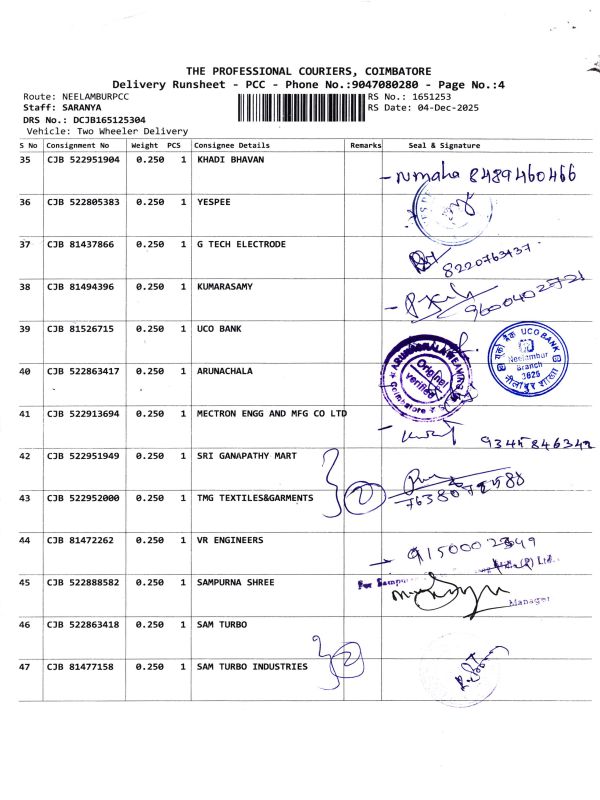 THE PROFESSIONAL COURIERS, COIMBATORE
Delivery Runsheet - PCC - Phone No.:9047080280 - Page No.:4
Route: NEELAMBURPCC RS No.: 1651253
Staff: SARANYA RS Date: 04-Dec-2025
DRS No.: DCJB165125304
Vehicle: Two Wheeler Delivery
S No Consignment No Weight PCS Consignee Details Remarks Seal & Signature
35 CJB 522951904 0.250 1 KHADI BHAVAN
8489460466
36 CJB 522805383 0.250 1 YESPEE
37 CJB 81437866 0.250 1 G TECH ELECTRODE
8220763137
38 CJB 81494396 0.250 1 KUMARASAMY
9600402721
39 CJB 81526715 0.250 1 UCO BANK
यूको बैंक UCO BANK
Neelambur
Branch
3825
नीलाम्बुर शाखा
40 CJB 522863417 0.250 1 ARUNACHALA
ARUNACHALA WEAVING
Original
verified
Coimbatore
41 CJB 522913694 0.250 1 MECTRON ENGG AND MFG CO LTD
9345846342
42 CJB 522951949 0.250 1 SRI GANAPATHY MART
2
43 CJB 522952000 0.250 1 TMG TEXTILES&GARMENTS
44 CJB 81472262 0.250 1 VR ENGINEERS
45 CJB 522888582 0.250 1 SAMPURNA SHREE
For Sampur
(P) Ltd.
Manager
46 CJB 522863418 0.250 1 SAM TURBO
2
47 CJB 81477158 0.250 1 SAM TURBO INDUSTRIES